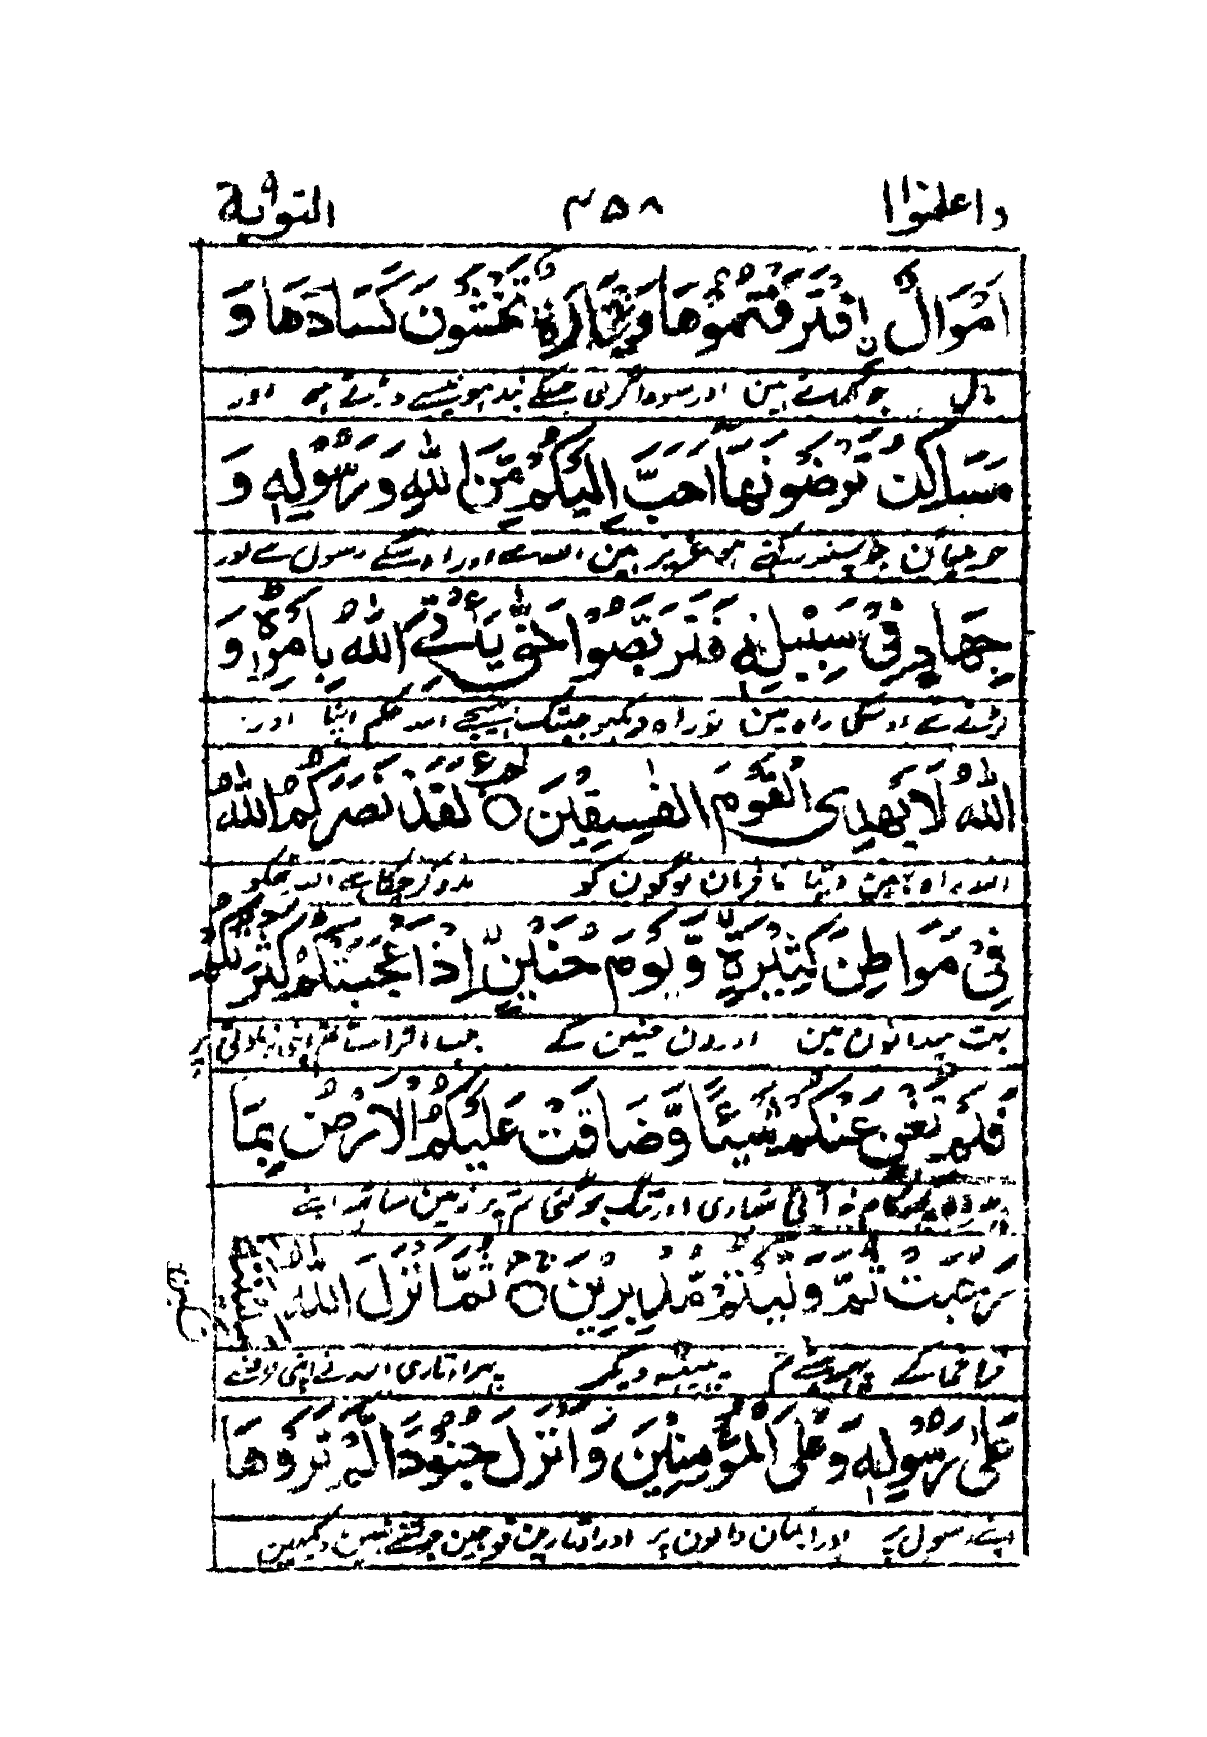 واعلموا ۱۰ ۳۵۸ التوبة ۹
اَمْوَالُ ِۨاقْتَرَفْتُمُوْهَا وَتِجَارَةٌ تَخْشَوْنَ كَسَادَهَا وَ
مال جو کمائے ہین اور سوداگری جسکے بند ہونیسے ڈرتے ہو اور
مَسٰكِنُ تَرْضَوْنَهَاۤ اَحَبَّ اِلَيْكُمْ مِّنَ اللّٰهِ وَرَسُوْلِهٖ وَ
حویلیان جو پسند رکھتے ہو عزیز ہین اللہ سے اور اوسکے رسول سے اور
جِهَادٍ فِيْ سَبِيْلِهٖ فَتَرَبَّصُوْا حَتّٰى يَاْتِيَ اللّٰهُ بِاَمْرِهٖ وَ
لڑنے سے اوسکی راہ مین تو راہ دیکھو جبتک بھیجے اللہ حکم اپنا اور
اللّٰهُ لَا يَهْدِى الْقَوْمَ الْفٰسِقِيْنَ ○ لَقَدْ نَصَرَكُمُ اللّٰهُ
اللہ راہ نہین دیتا نافرمان لوگون کو مدد کر چکا ہے اللہ تمکو
فِيْ مَوَاطِنَ كَثِيْرَةٍ وَّيَوْمَ حُنَيْنٍ اِذْ اَعْجَبَتْكُمْ كَثْرَتُكُمْ
بہت میدانون مین اور دن حنین کے جب اترائے تم اپنی زیادتی پر
فَلَمْ تُغْنِ عَنْكُمْ شَيْئًا وَّضَاقَتْ عَلَيْكُمُ الْاَرْضُ بِمَا
پھر وہ کچھ کام نہ آئی تمھاری اور تنگ ہو گئی تم پر زمین ساتھ اپنے
رَحُبَتْ ثُمَّ وَلَّيْتُمْ مُّدْبِرِيْنَ ○ ثُمَّ اَنْزَلَ اللّٰهُ سَكِيْنَتَهٗ
فراخی کے پھر ہٹے تم پیٹھ دیکر پھر اوتاری اللہ نے اپنی طرف سے
عَلٰى رَسُوْلِهٖ وَعَلَى الْمُؤْمِنِيْنَ وَاَنْزَلَ جُنُوْدًا لَّمْ تَرَوْهَا
اپنے رسول پر اور ایمان والون پر اور اوتارین فوجین جو تمنے نہین دیکھین